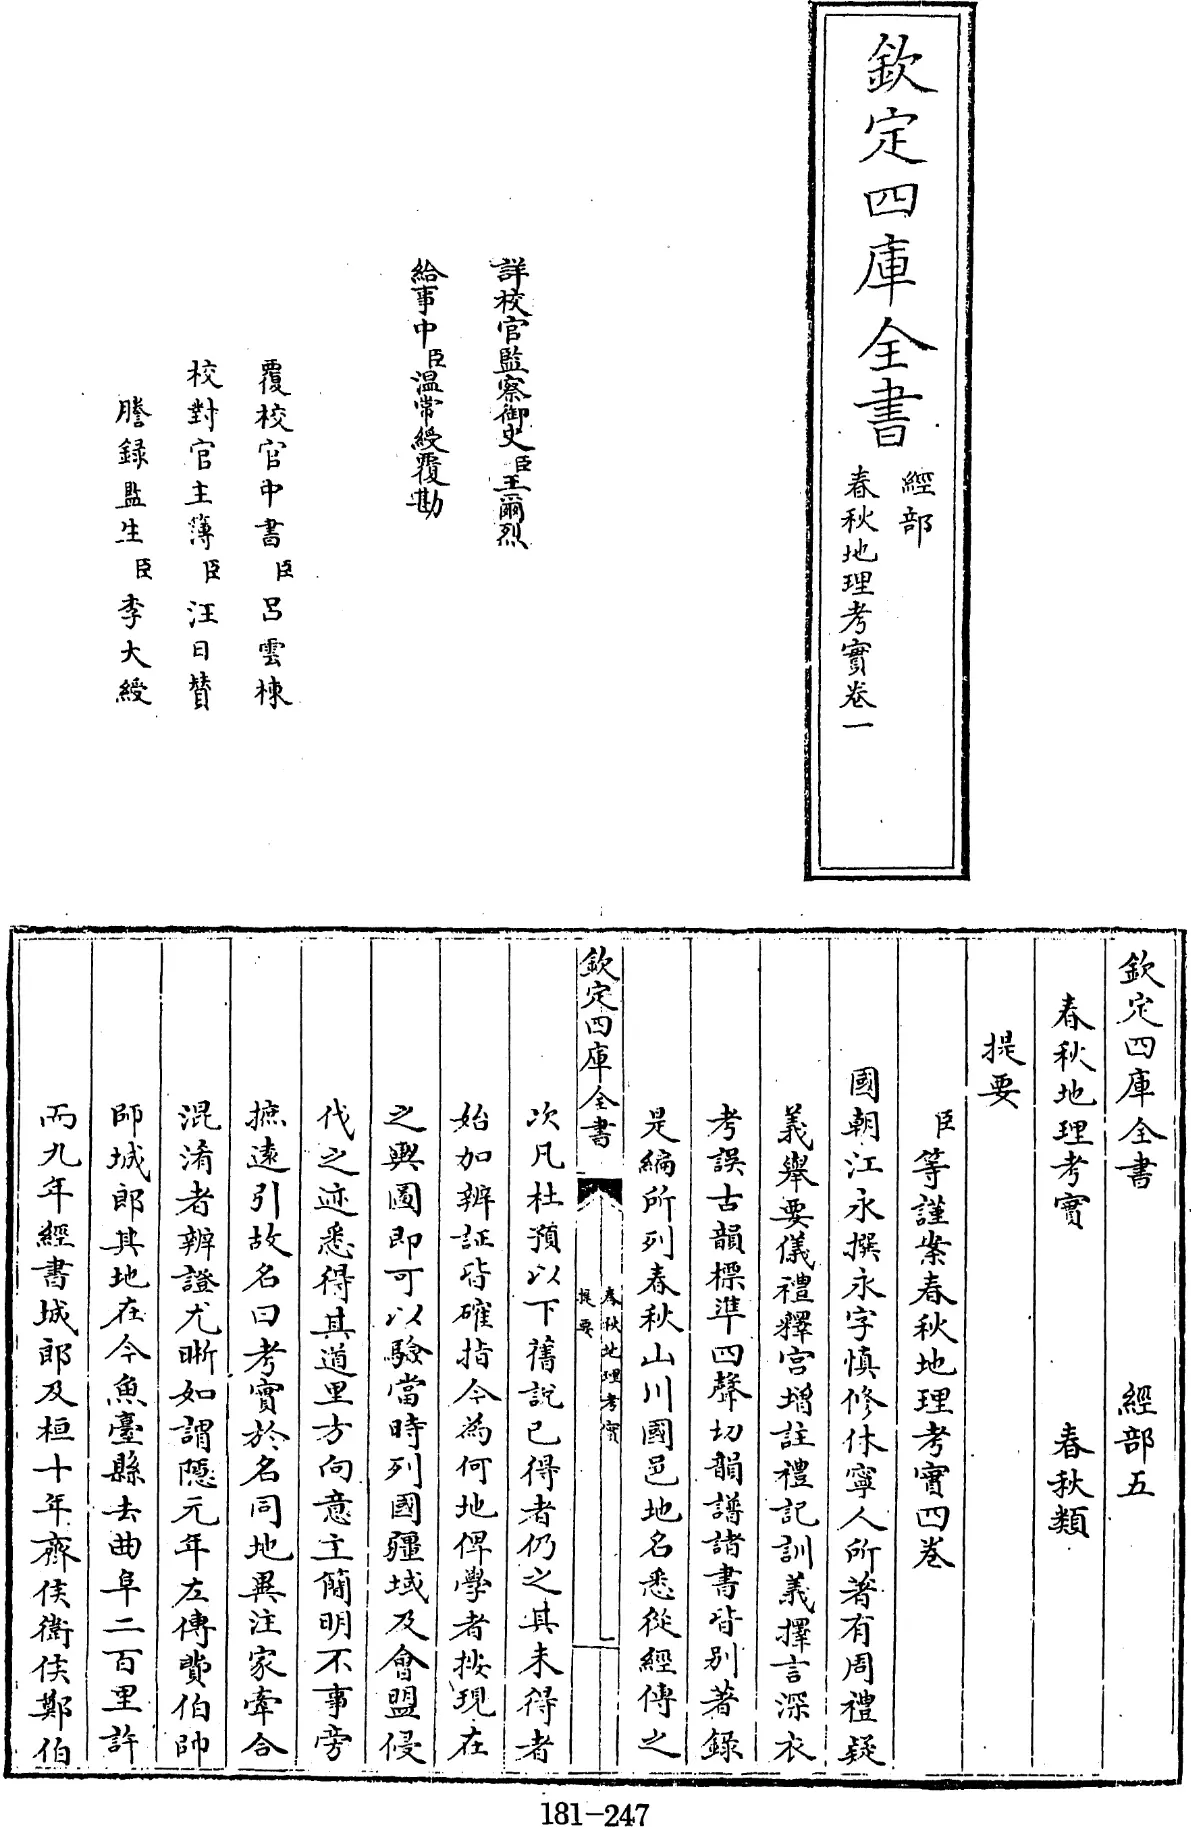 欽定四庫全書
經部
春秋地理考實卷一
詳校官監察御史臣王爾烈
給事中臣温常綬覆勘
覆校官中書臣呂雲棟
校對官主簿臣汪日贊
謄録監生臣李大綬
欽定四庫全書 經部五
春秋地理考實 春秋類
提要
臣等謹案春秋地理考實四卷
國朝江永撰永字慎修休寧人所著有周禮疑
義舉要儀禮釋宫增註禮記訓義擇言深衣
考誤古韻標準四聲切韻譜諸書皆别著録
是編所列春秋山川國邑地名悉從經傳之
欽定四庫全書
春秋地理考實
提要
一
次凡杜預以下舊説已得者仍之其未得者
始加辨証皆確指今為何地俾學者按現在
之輿圖即可以驗當時列國疆域及會盟侵
代之迹悉得其道里方向意主簡明不事旁
摭遠引故名曰考實於名同地異注家牽合
混淆者辨證尤晰如謂隱元年左傳費伯帥
師城郎其地在今魚臺縣去曲阜二百里許
而九年經書城郎及桓十年齊侯衛侯鄭伯
181-247